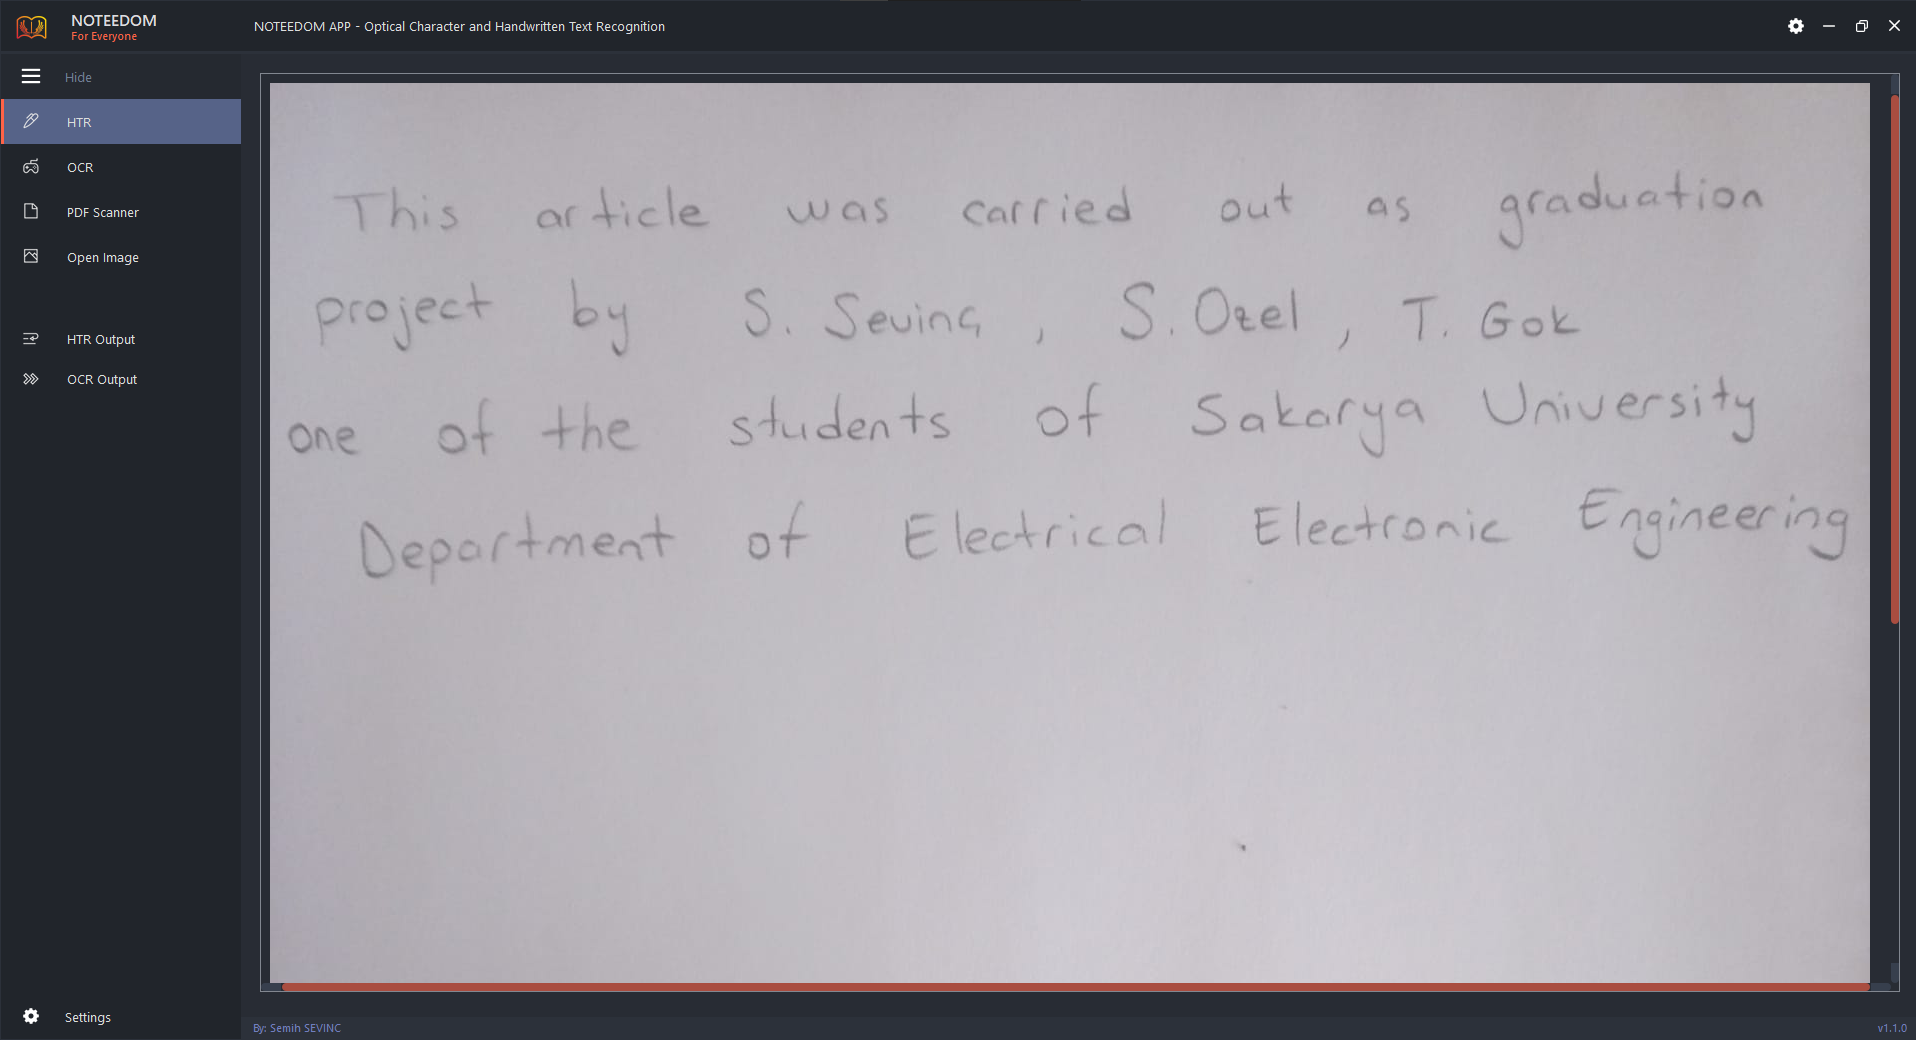 NOTEEDOM
For Everyone
NOTEEDOM APP - Optical Character and Handwritten Text Recognition
Hide
HTR
OCR
PDF Scanner
Open Image
HTR Output
OCR Output
Settings
This article was carried out as graduation
project by S. Sevinç , S. Ozel , T. Gok
one of the students of Sakarya University
Department of Electrical Electronic Engineering
By: Semih SEVINC
v1.1.0